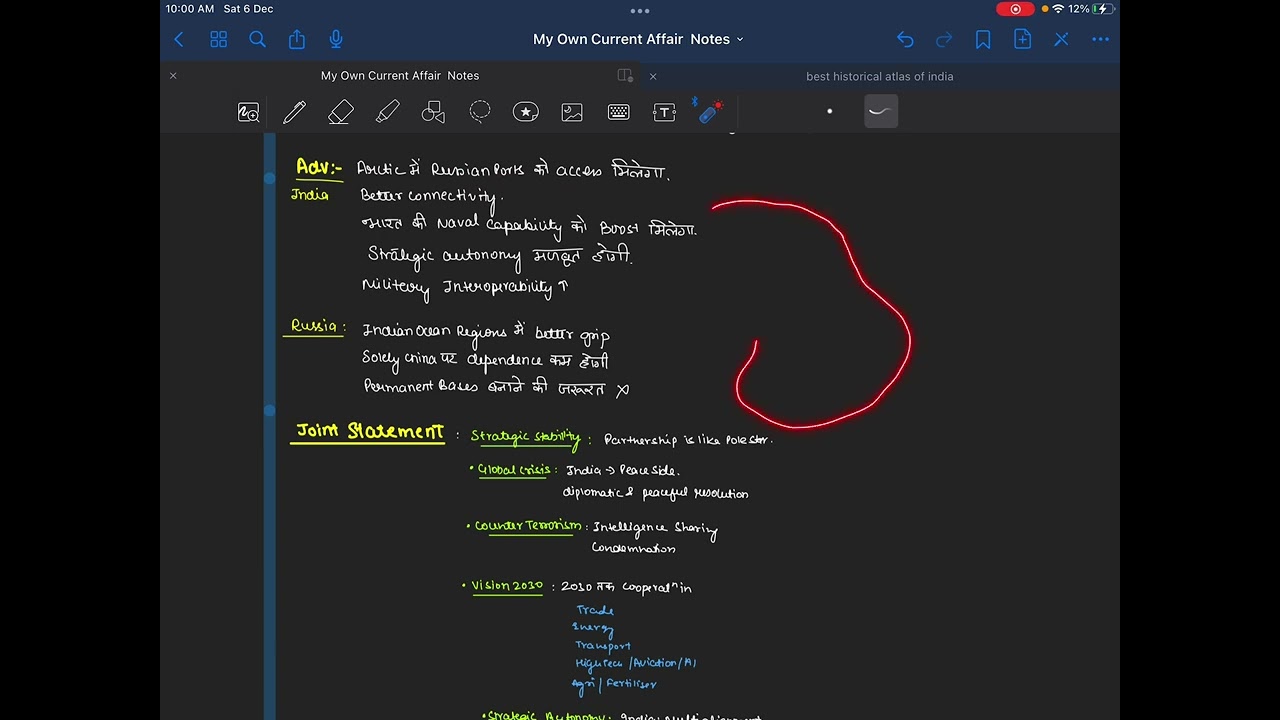 10:00 AM Sat 6 Dec
12%
My Own Current Affair Notes
My Own Current Affair Notes
best historical atlas of india
Adv:- Arctic में Russian Ports को access मिलेगा.
India Better connectivity.
भारत की Naval Capability को Boost मिलेगा.
Strategic autonomy मजबूत होगी.
Military Interoperability ↑
Russia : Indian Ocean Regions में better grip
Solely China पर dependence कम होगी
Permanent Bases बनाने की जरूरत X
Joint Statement : Strategic stability : Partnership is like Pole str.
• Global crisis : India → Peace side.
diplomatic & peaceful resolution
• Counter Terrorism : Intelligence Sharing
Condemnation
• Vision 2030 : 2030 तक Cooperatn in
Trade
Energy
Transport
High Tech / Aviation / AI
Agri / Fertiliser
• Strategic Autonomy : India: Multialignment